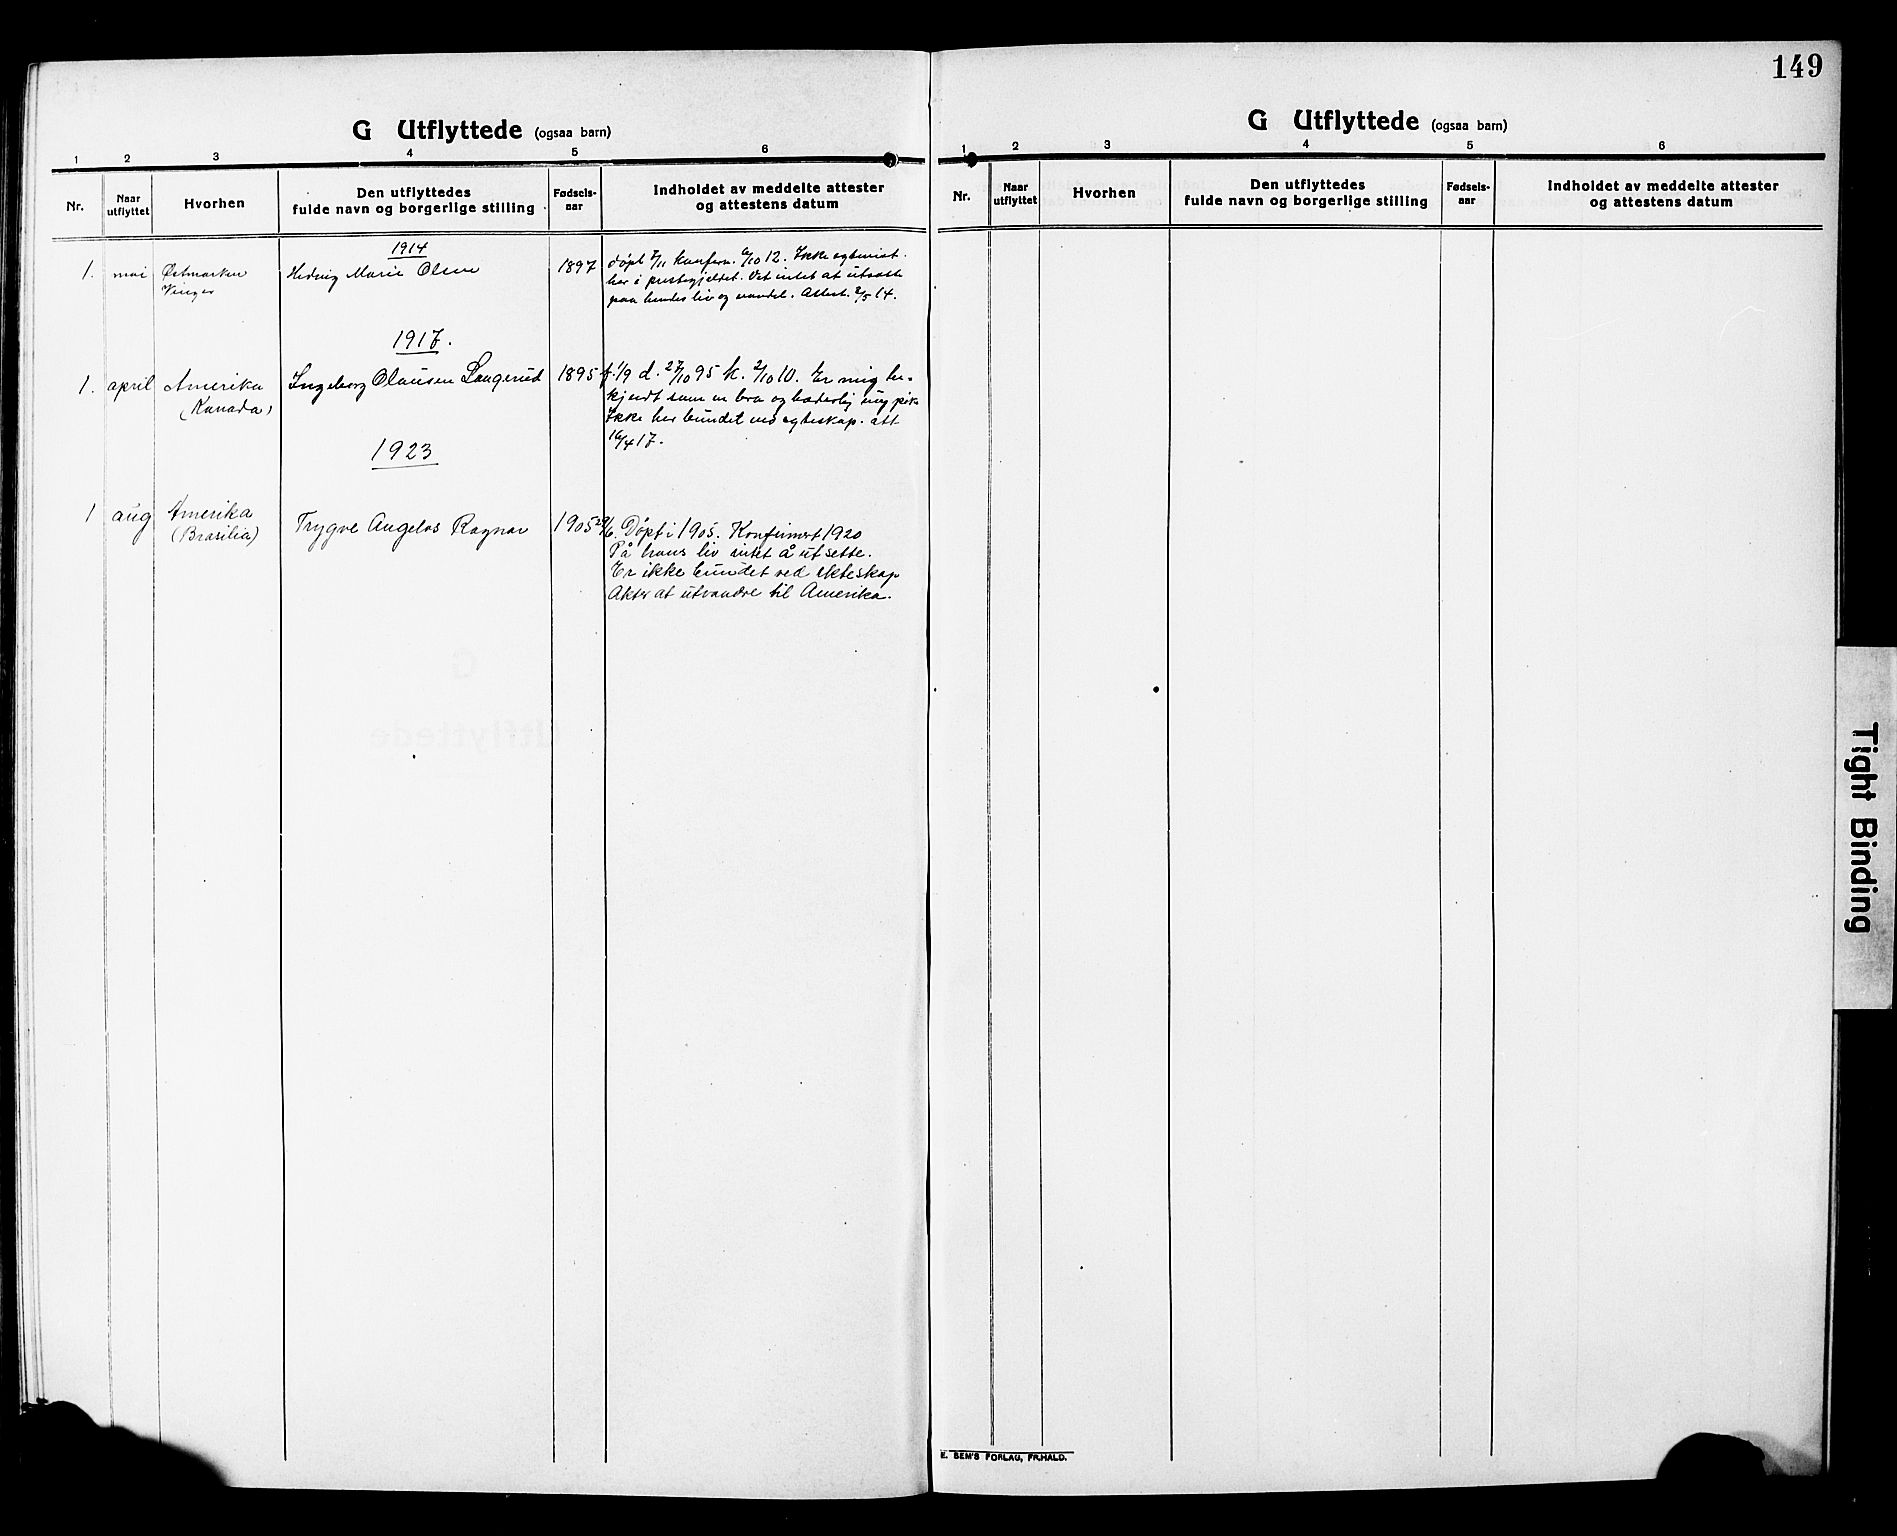 149
G Utflyttede (ogsaa barn)
1 2 3 4 5 6
Nr.
Naar utflyttet
Hvorhen
Den utflyttedes
fulde navn og borgerlige stilling
Fødsels-
aar
Indholdet av meddelte attester
og attestens datum
1914
1. mai Østmarken
Vinger
Hedvig Marie Olsen
1897
døpt 7/11 konfirm. 6/10 12. Ikke egteviet
her i prestegjeldet. Vet intet at utsætte
paa hendes liv og vandel. Attest. 8/5 14.
1917.
1. april Amerika
(Kanada)
Ingeborg Clausen Laugerud
1895
f. 1/9 d. 27/10 95 k. 2/10 10. Er mig be-
kjendt som en bra og hæderlig ung pike
Ikke her bundet ved egteskap. att
16/4 17.
1923
1 aug Amerika
(Brasilia)
Trygve Angelos Ragnar
1905 29/6.
Døpt i 1905. Konfirmert 1920
På hans liv intet å utsette.
Er ikke bundet ved ekteskap
Akter at utvandre til Amerika.
G
Utflyttede
G Utflyttede (ogsaa barn)
1 2 3 4 5 6
Nr.
Naar
utflyttet
Hvorhen
Den utflyttedes
fulde navn og borgerlige stilling
Fødsels-
aar
Indholdet av meddelte attester
og attestens datum
E. SEM'S FORLAG, FR.HALD.
Tight Binding